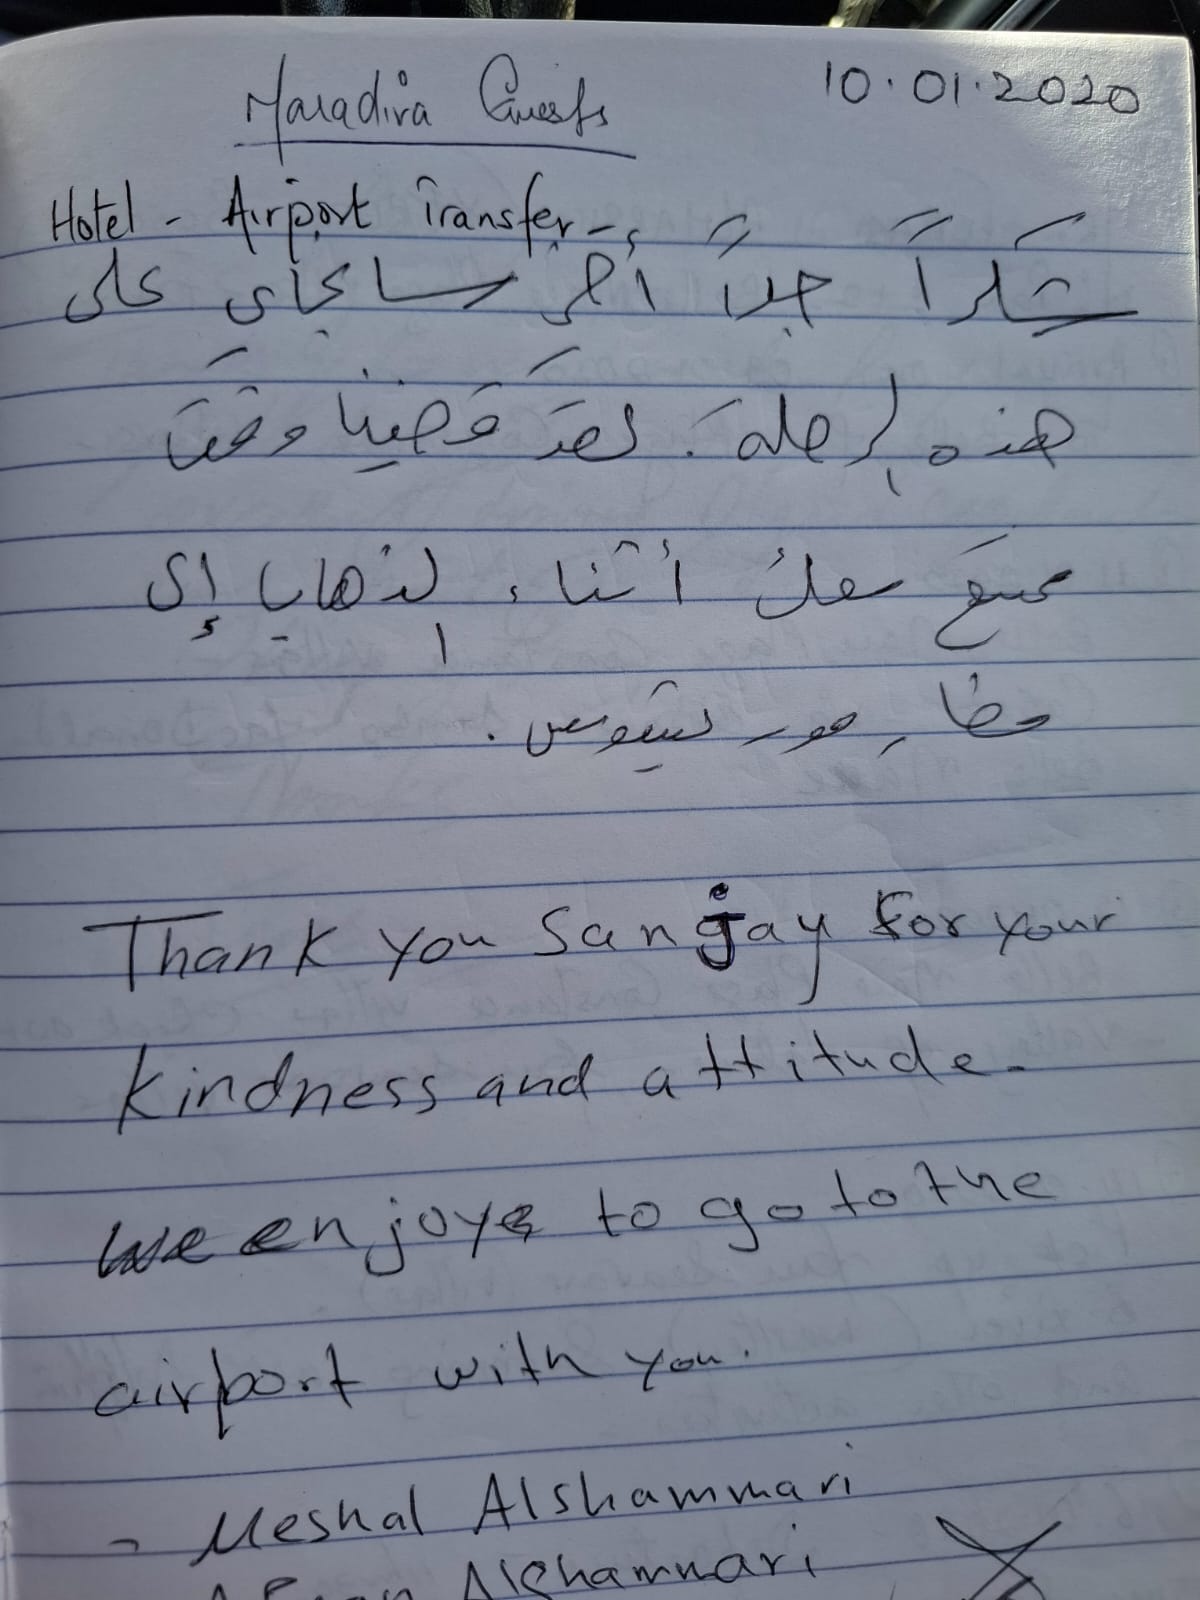 Maradiva Guests
10.01.2020
Hotel - Airport Transfer -
شكراً جداً أخي سانجاي على
هذه الرحلة. لقد قضينا وقتاً
ممتع معك أثناء الذهاب إلى
مطار مور يشيوس.
Thank you Sanjay for your
kindness and attitude.
we enjoye to go to the
airport with you.
- Meshal Alshammari
Alshammari